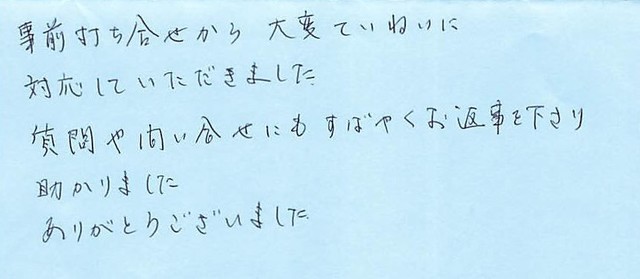 事前打ち合せから 大変ていねいに
対応していただきました
質問や問い合せにもすばやくお返事を下さり
助かりました
ありがとうございました